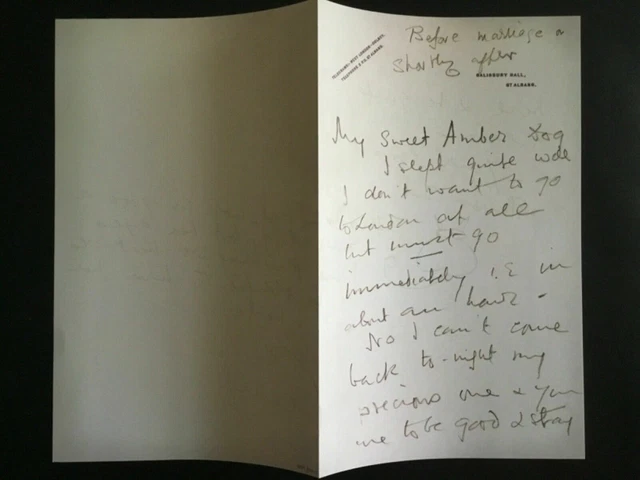 Before marriage or
shortly after
TELEPHONE & P.O. ST ALBANS.
SALISBURY HALL,
ST ALBANS.
My sweet Amber Dog
I slept quite well
I don't want to go
to London at all
but must go
immediately i.e in
about an hour -
No I can't come
back to-night my
precious one & you
are to be good & stay